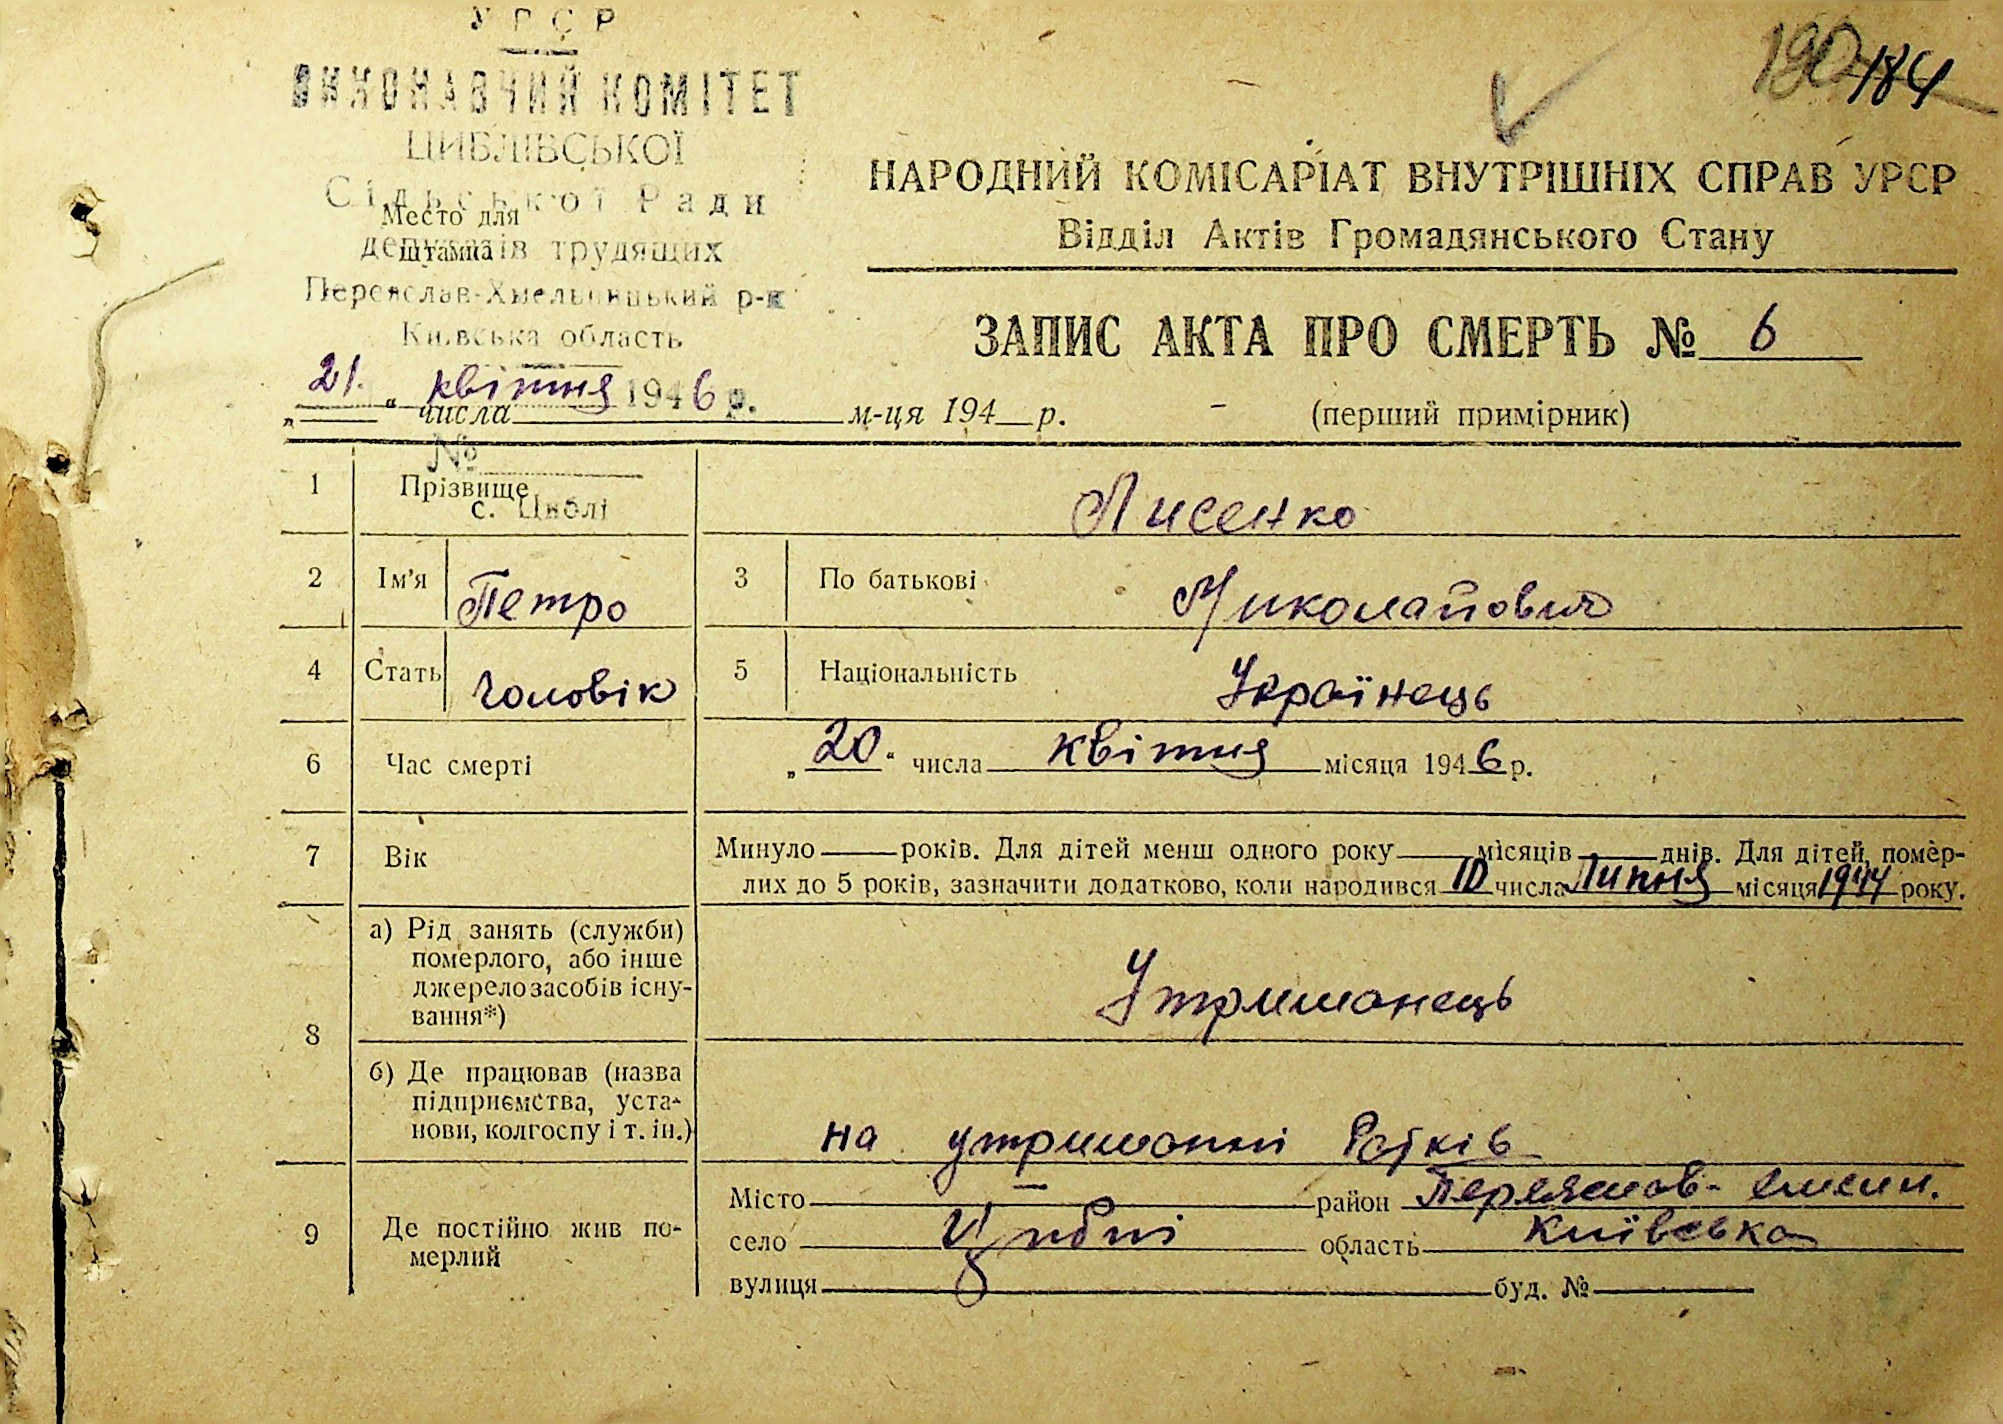 УРСР
ВИКОНАВЧИЙ КОМІТЕТ
ЦИБЛІВСЬКОЇ
Сільської Ради
депутатів трудящих
Переяслав-Хмельницький р-н
Київська область
Место для
штампа
190 184
НАРОДНИЙ КОМІСАРІАТ ВНУТРІШНІХ СПРАВ УРСР
Відділ Актів Громадянського Стану
ЗАПИС АКТА ПРО СМЕРТЬ № 6
21 " квітня 1946 р.
„ " числа м-ця 194 р. (перший примірник)
№
с. Циблі
1 Прізвище Лисенко
2 Ім'я Петро 3 По батькові Миколайович
4 Стать Чоловік 5 Національність Українець
6 Час смерті „20" числа квітня місяця 1946 р.
7 Вік Минуло років. Для дітей менш одного року місяців днів. Для дітей, помер-
лих до 5 років, зазначити додатково, коли народився 10 числа Липня місяця 1944 року.
8 а) Рід занять (служби)
померлого, або інше
джерело засобів існу-
вання*) Утриманець
б) Де працював (назва
підприємства, уста-
нови, колгоспу і т. ін.) на утриманні
9 Де постійно жив по-
мерлий
Місто — район Переяслав-
село Циблі область Київська
вулиця буд. №